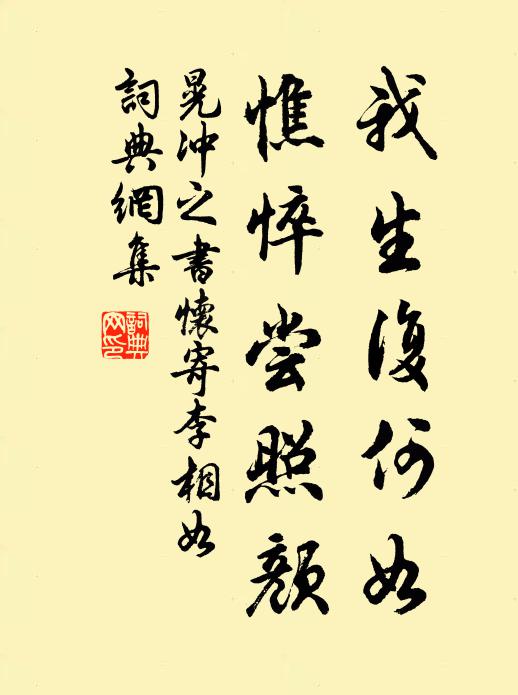 我生復何如
憔悴尝照顔
晃冲之書懷寄李相如
詞典網集
詞典
网印